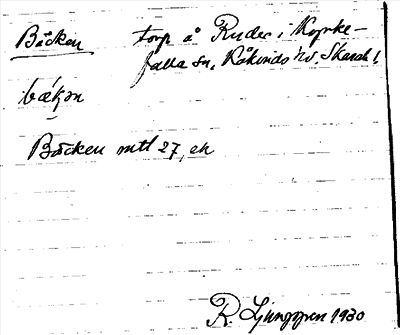 Bäcken torp å Ruder i Kyrke-
falla sn, Kåkinds hd, Skarab l.
bæk̄ən
Bäcken mtl 27, ek
R. Ljunggren 1930